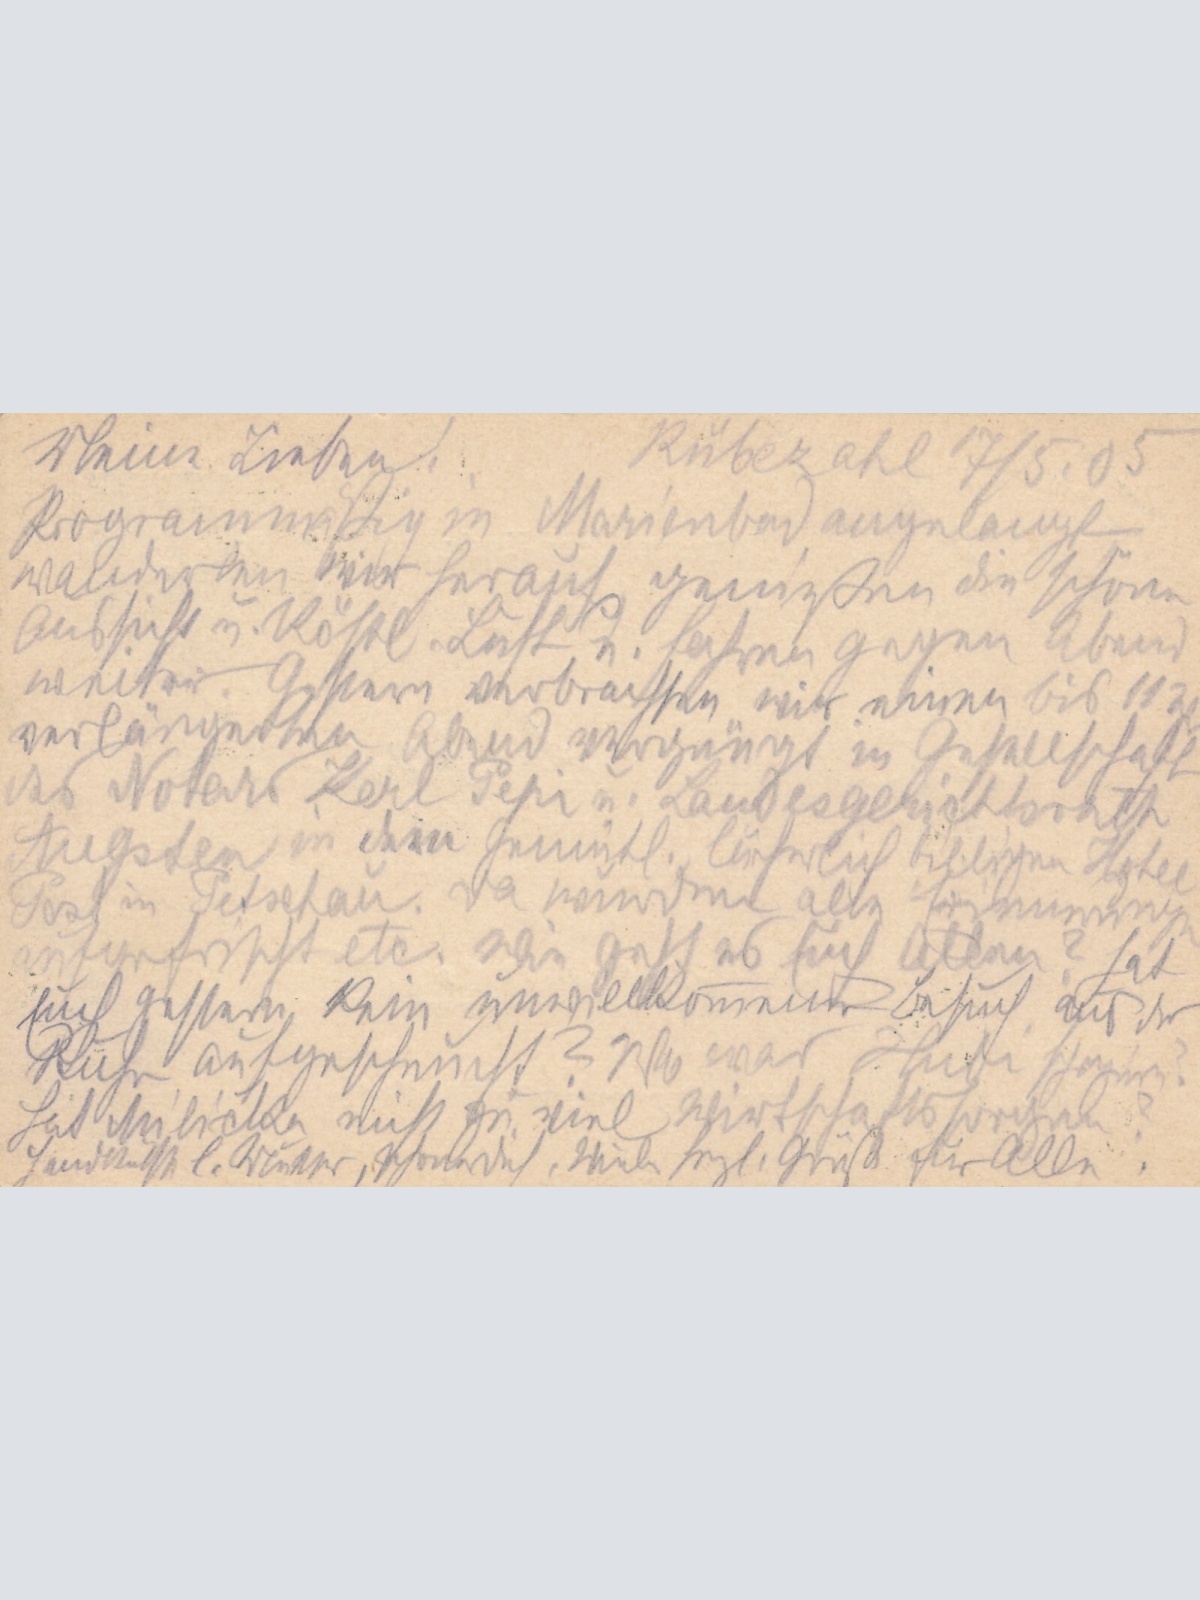 Meine Lieben! Rübezahl 17/5.05
Programmäßig in Marienbad angelangt
wanderten wir herauf genießen die schöne
Aussicht u. köstl. Luft u. fahren gegen Abend
weiter. Gestern verbrachten wir einen bis 11 20
verlängerten Abend vergnügt in Gesellschaft
des Notars Karl Pepi u. Landesgerichtsrath
Augsten in dem gemütl. lächerlich billigen Hotel
Post in Petschau. Da wurden alle Erinnerungen
aufgefrischt etc. Wie geht es Euch Allen? Hat
Euch gestern kein unwillkommener Besuch aus der
Ruhe aufgescheucht? Wo war
Hat nicht zu viel Wirtschaftssorgen?
Handküsse l. Mutter, Viele hzl. Grüße für Alle.